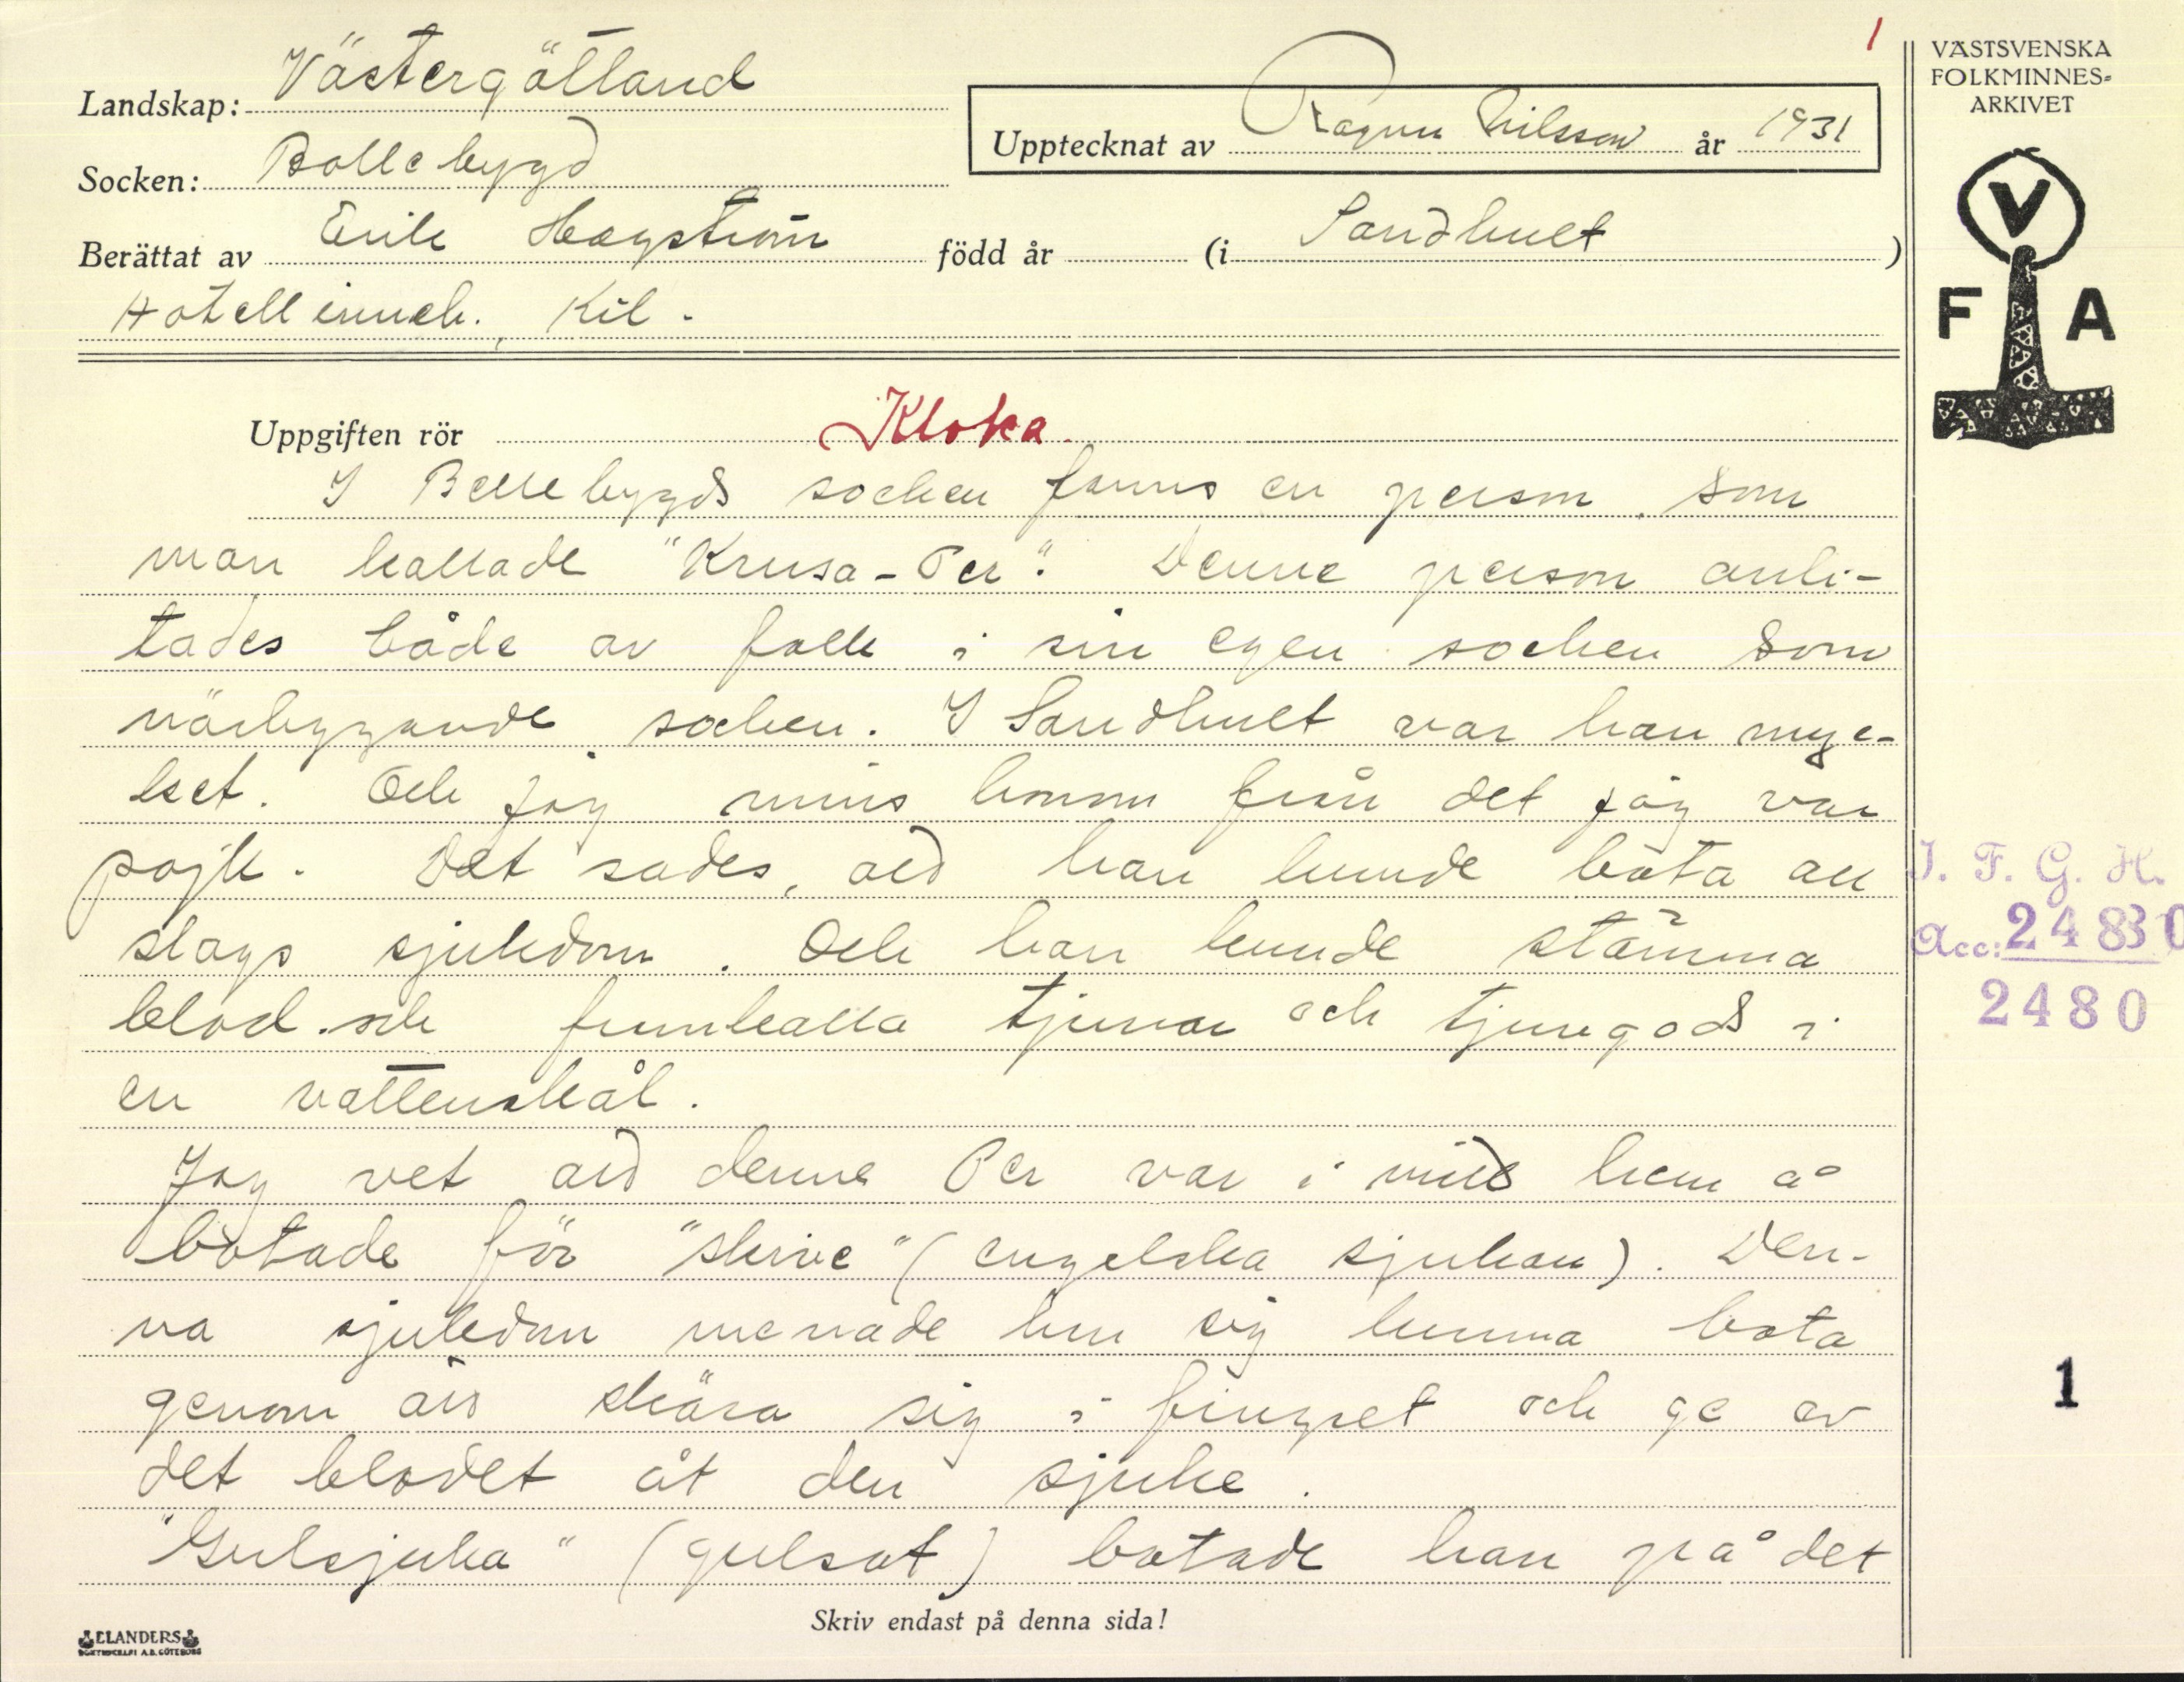 1
VÄSTSVENSKA
FOLKMINNES=
ARKIVET
Landskap: Västergötland
Upptecknat av Ragnar Nilsson år 1931
Socken: Bollebygd
Berättat av Erik Hagström född år (i Sandhult )
Hotellinneh. Kil.
V
F A
Uppgiften rör Kloka.
I Bollebygds socken fanns en person, som
man kallade "Krusa-Per". Denne person anli-
tades både av folk i sin egen socken som
närliggande socken. I Sandhult var han myc-
ket. Och jag minns honom från det jag var
pojk. Det sades, att han kunde bota all
slags sjukdom. Och han kunde stämma
blod och framkalla tjuvar och tjuvgods i
en vattenskål.
Jag vet att denne Per var i mitt hem å
botade för "skrive" (engelska sjukan). Den-
na sjukdom menade han sig kunna bota
genom att skära sig i fingret och ge av
det blodet åt den sjuke.
"Gulsjuka" (gulsot) botade han på det
I. F. G. H.
Acc: 2480
2480
1
Skriv endast på denna sida!
ELANDERS
BOKTRYCKERI A.B. GÖTEBORG